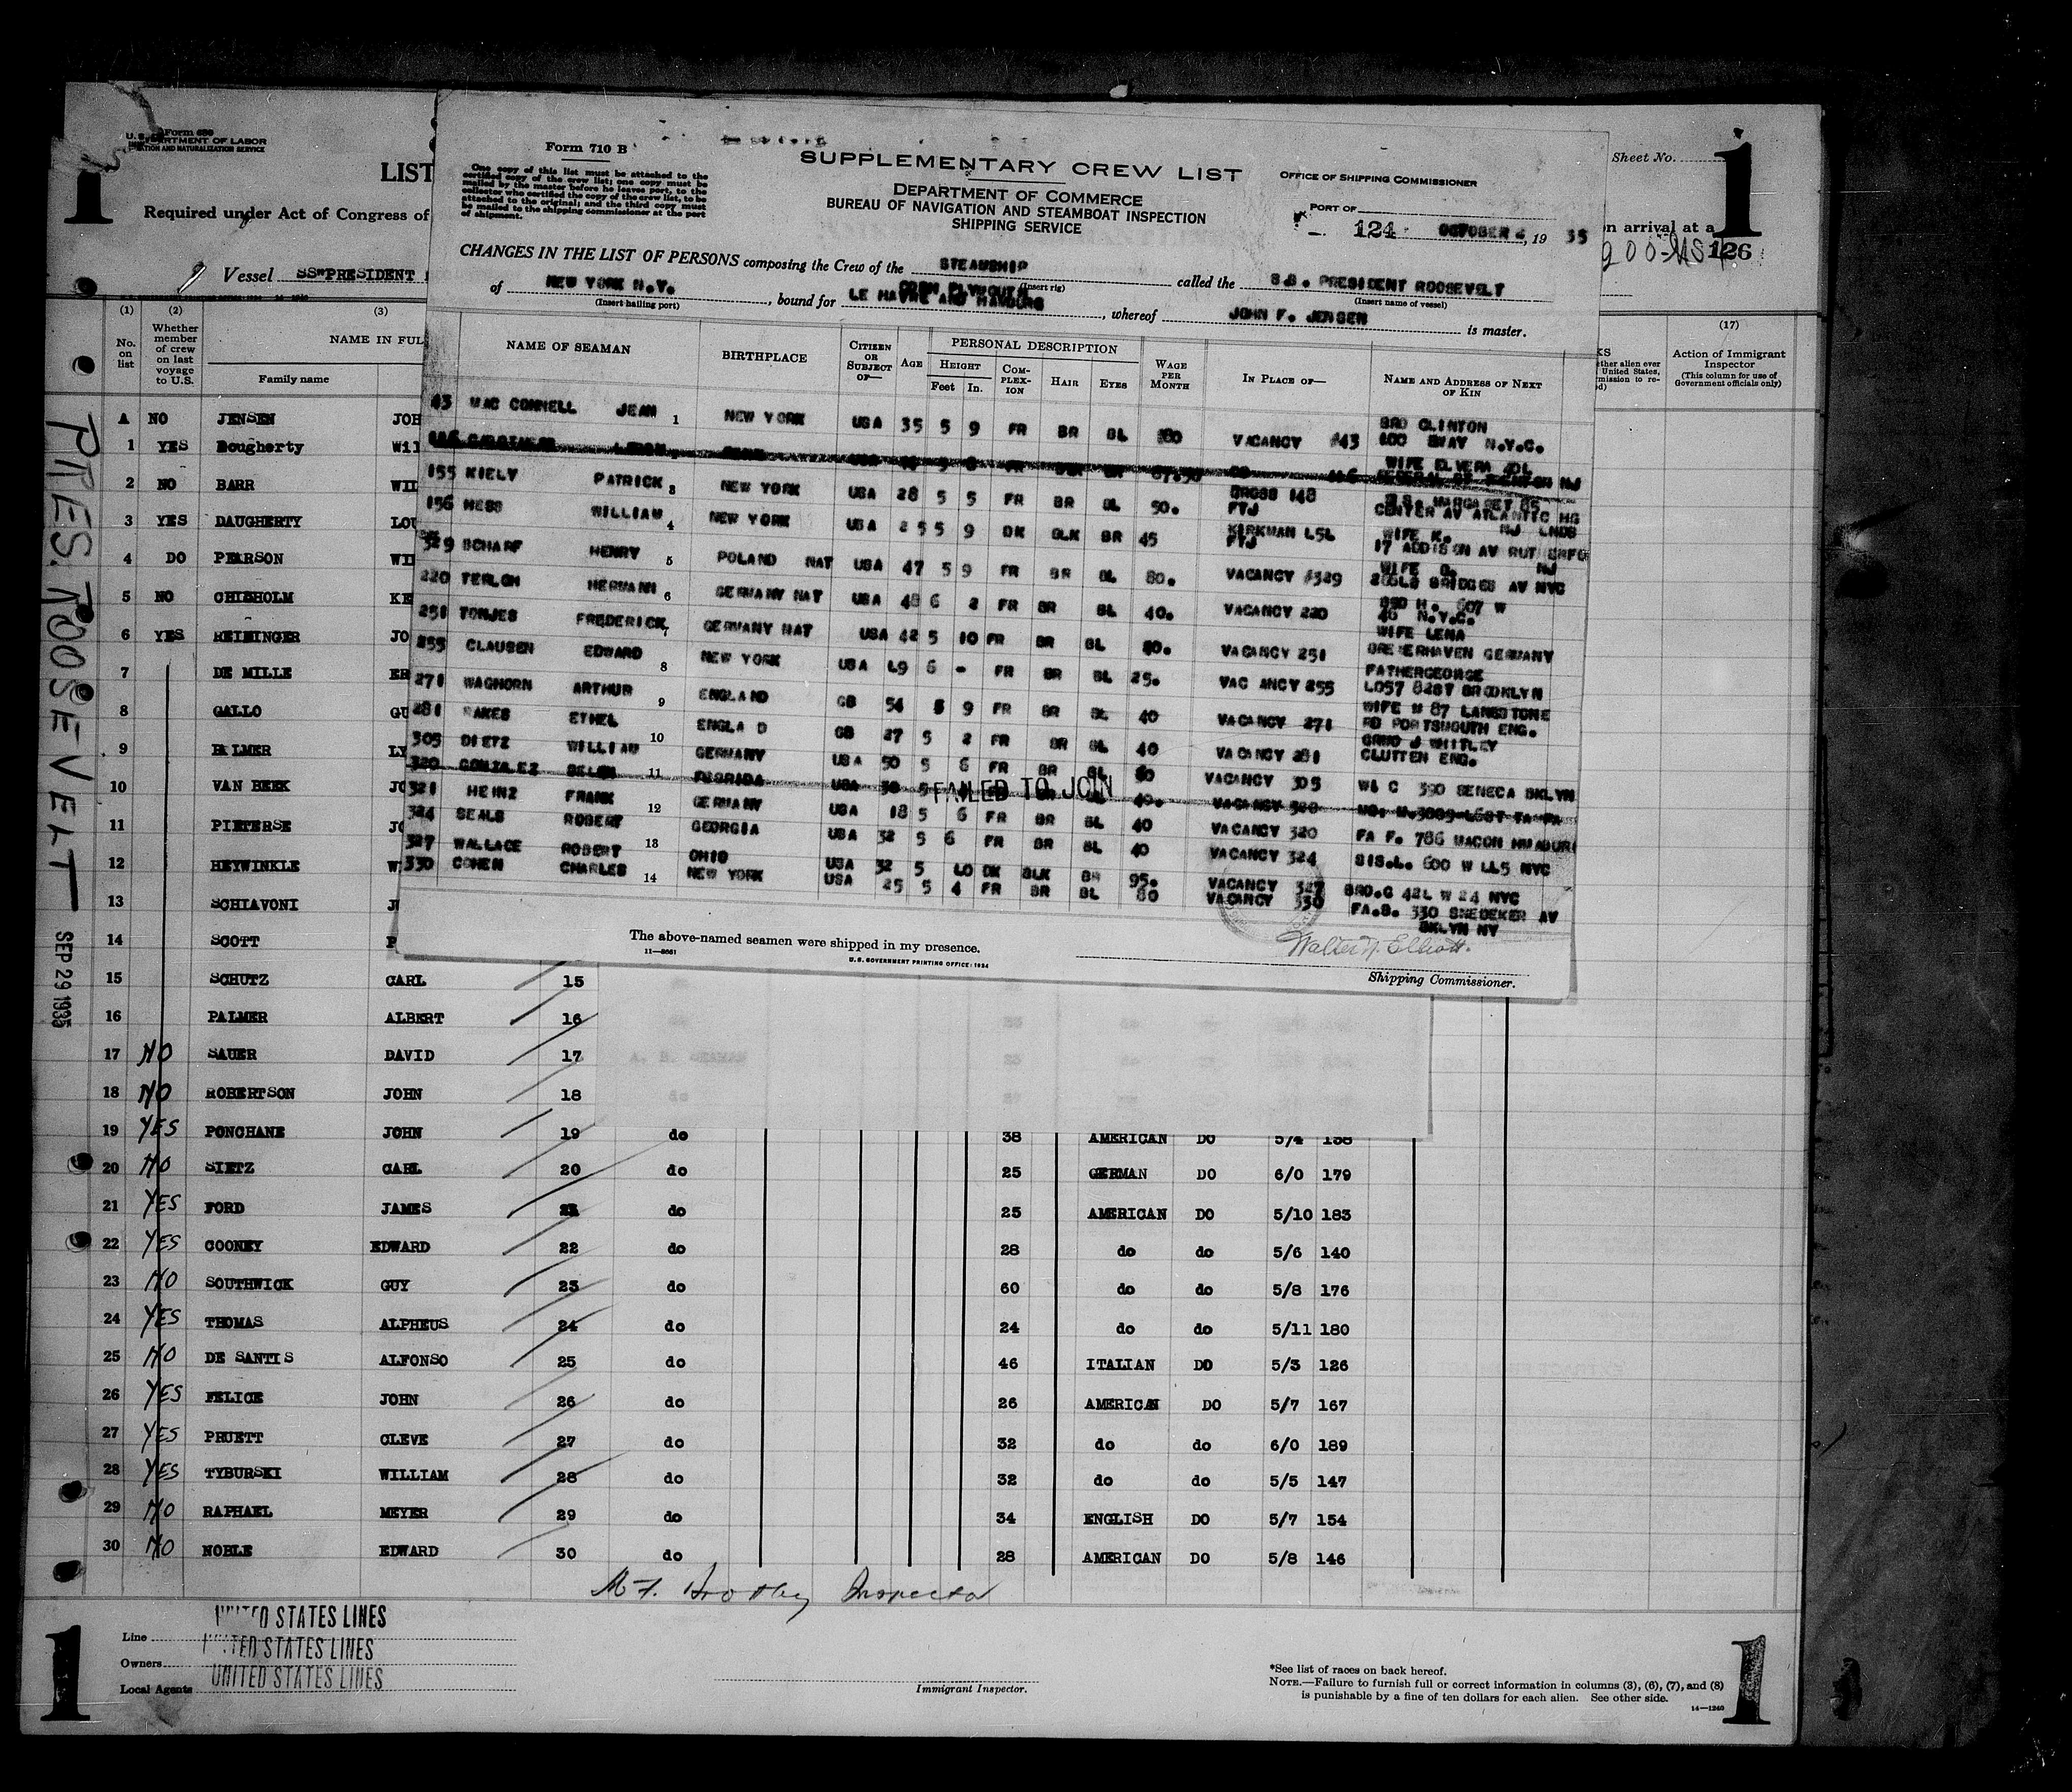 Form 689
U. S. DEPARTMENT OF LABOR
IMMIGRATION AND NATURALIZATION SERVICE
1
LIST
Required under Act of Congress of
Vessel SS"PRESIDENT
Sheet No. 1
on arrival at a
126
(1) (2) (3)
No. on list
Whether member of crew on last voyage to U.S.
NAME IN FUL
Family name
(17)
Action of Immigrant Inspector
(This column for use of Government officials only)
Form 710 B
One copy of this list must be attached to the
certified copy of the crew list; one copy must be
mailed by the master before he leaves port, to the
collector who certified the copy of the crew list, to be
attached to the original; and the third copy must
be mailed to the shipping commissioner at the port
of shipment.
SUPPLEMENTARY CREW LIST
DEPARTMENT OF COMMERCE
BUREAU OF NAVIGATION AND STEAMBOAT INSPECTION
SHIPPING SERVICE
OFFICE OF SHIPPING COMMISSIONER
PORT OF
124 OCTOBER 2, 19 35
CHANGES IN THE LIST OF PERSONS composing the Crew of the STEAMSHIP called the S.S. PRESIDENT ROOSEVELT
(Insert rig) (Insert name of vessel)
of NEW YORK N.Y., bound for COBH PLYMOUTH LE HAVRE AND HAMBURG, whereof JOHN F. JENSEN is master.
(Insert hailing port)
NAME OF SEAMAN BIRTHPLACE CITIZEN OR SUBJECT OF— AGE PERSONAL DESCRIPTION WAGE PER MONTH IN PLACE OF— NAME AND ADDRESS OF NEXT OF KIN
HEIGHT Feet In. COMPLEXION HAIR EYES
43 MAC CONNELL JEAN 1 NEW YORK USA 35 5 9 FR BR BL VACANCY #43 BRO CLINTON 600 BWAY N.Y.C.
WIFE ELVERA
155 KIELY PATRICK 3 NEW YORK USA 28 5 5 FR BR BL 50. GROSS 148 FTJ MARGARET 85 CENTER AV ATLANTIC HG NJ LNDS
156 HESS WILLIAM 4 NEW YORK USA 25 5 9 DK BLK BR 45 KIRKMAN 151 FTJ WIFE K. 17 ADDISON AV RUTHERFO NJ
329 SCHARF HENRY 5 POLAND NAT USA 47 5 9 FR BR BL 80. VACANCY #329 BRIDGES AV NYC
220 TERLOH HERMANN 6 GERMANY NAT USA 48 6 2 FR BR BL 40. VACANCY 220 BRO H. 607 W 46 N.Y.C.
251 TONJES FREDERICK 7 GERMANY NAT USA 42 5 10 FR BR BL VACANCY 251 WIFE LENA BREMERHAVEN GERMANY
255 CLAUSEN EDWARD 8 NEW YORK USA 19 6 - FR BR BL 25. VAC ANCY 255 FATHERGEORGE 1057 82ST BROOKLYN
271 WAGHORN ARTHUR 9 ENGLAND GB 54 5 9 FR BR BL 40 VACANCY 271 WIFE 87 LANGSTONE RD PORTSMOUTH ENG.
281 ETHEL 10 ENGLA D GB 27 5 2 FR BR BL 40 VACANCY 281 WHITLEY CLUTTEN ENG.
305 DIETZ WILLIAM GERMANY USA 50 5 6 FR BR BL 60 VACANCY 305 WI C 390 SENECA BKLYN
320 GONZALEZ BELEN 11 FLORIDA USA 5 FAILED TO JOIN 40. VACANCY 320
321 HEINZ FRANK 12 GERMANY USA 18 5 6 FR BR BL 40 VACANCY 320 FA F. 786 MACON
324 SEALS ROBERT GEORGIA USA 32 5 6 FR BR BL 40 VACANCY 324 SIS.L. 600 W 115 NYC
327 WALLACE ROBERT 13 OHIO USA 32 5 10 DK BLK BR 95. VACANCY 327 BRO.G 421 W 24 NYC
330 COHEN CHARLES 14 NEW YORK USA 25 5 4 FR BR BL 80 VACANCY 330 FA.S. 330 SNEDEKER AV BKLYN NY
The above-named seamen were shipped in my presence.
11—8661
U. S. GOVERNMENT PRINTING OFFICE: 1934
Walter N. Elliott.
Shipping Commissioner.
PRES. ROOSEVELT
SEP 29 1935
A NO JENSEN JOH
1 YES Dougherty Wil
2 NO BARR WIL
3 YES DAUGHERTY LOU
4 DO PEARSON WIL
5 NO CHISHOLM KE
6 YES REININGER JO
7 DE MILLE ER
8 GALLO GU
9 PALMER LY
10 VAN BEEK JO
11 PIETERSE JO
12 HEYWINKLE W
13 SCHIAVONI J
14 SCOTT
15 SCHUTZ CARL 15
16 PALMER ALBERT 16
17 NO SAUER DAVID 17
18 NO ROBERTSON JOHN 18
19 YES PONCHANE JOHN 19 do 38 AMERICAN DO 5/4 138
20 NO SIETZ CARL 20 do 25 GERMAN DO 6/0 179
21 YES FORD JAMES 21 do 25 AMERICAN DO 5/10 183
22 YES COONEY EDWARD 22 do 28 do do 5/6 140
23 NO SOUTHWICK GUY 23 do 60 do do 5/8 176
24 YES THOMAS ALPHEUS 24 do 24 do do 5/11 180
25 NO DE SANTIS ALFONSO 25 do 46 ITALIAN DO 5/3 126
26 YES FELICE JOHN 26 do 26 AMERICAN DO 5/7 167
27 YES PRUETT CLEVE 27 do 32 do do 6/0 189
28 YES TYBURSKI WILLIAM 28 do 32 do do 5/5 147
29 NO RAPHAEL MEYER 29 do 34 ENGLISH DO 5/7 154
30 NO NOBLE EDWARD 30 do 28 AMERICAN DO 5/8 146
Inspector
Line UNITED STATES LINES
Owners UNITED STATES LINES
Local Agents UNITED STATES LINES
Immigrant Inspector.
*See list of races on back hereof.
NOTE.—Failure to furnish full or correct information in columns (3), (6), (7), and (8)
is punishable by a fine of ten dollars for each alien. See other side.
14—1240
1
1